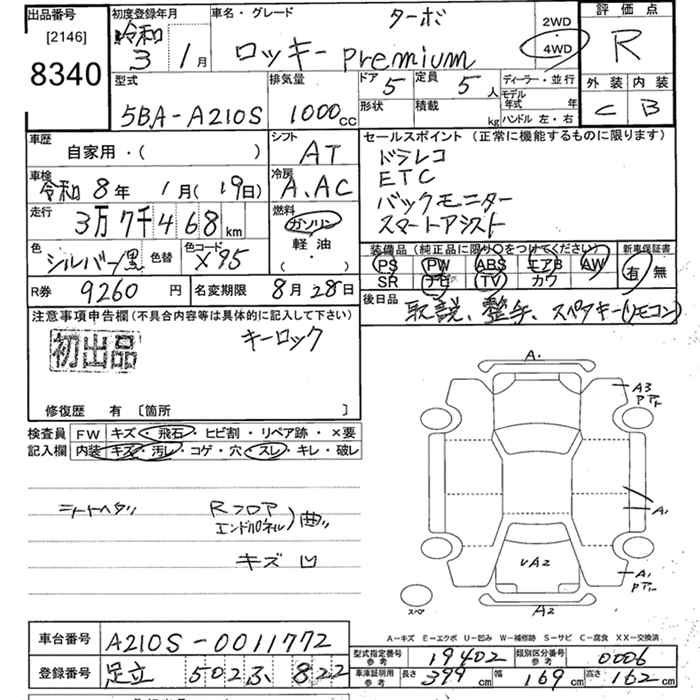 出品番号
[2146]
8340
初度登録年月
令和
3 1月
車名・グレード
ターボ
ロッキー premium
2WD
4WD
評価点
R
外装 内装
C B
型式
5BA-A210S
排気量
1000cc
ドア
5
定員
5人
形状
積載
kg
ディーラー・並行
モデル
年式 年
ハンドル 左・右
車歴
自家用・( )
シフト
AT
セールスポイント (正常に機能するものに限ります)
ドラレコ
ETC
バックモニター
スマートアシスト
車検
令和 8年 1月(19日)
冷房
A.AC
走行
3万7千468km
燃料
ガソリン
軽油
( ・ )
色
シルバー/黒
色替
色コード
X95
装備品(純正品に限り○をつけてください)
PS PW ABS エアB AW
SR ナビ TV カワ
新車保証書
有・無
R券 9260円
名変期限 8月28日
後日品
取説、整手、スペアキー(リモコン)
注意事項申告欄(不具合内容等は具体的に記入して下さい)
初出品
キーロック
修復歴 有 [箇所 ]
検査員
記入欄
FW キズ・飛石・ヒビ割・リペア跡・×要
内装 キズ・汚レ・コゲ・穴・スレ・キレ・破レ
シートヘタリ
Rフロア
エンドパネル)曲
キズ凹
A.
A3
Pアト
A1
A1
Pアト
VA2
A2
スペア
A-キズ E-エクボ U-凹み W-補修跡 S-サビ C-腐食 XX-交換済
車台番号 A210S-0011772
登録番号 足立 502 る 822
型式指定番号
参考
19402
類別区分番号
参考
0006
車庫証明用
参考
長さ 399cm
幅 169cm
高さ 162cm